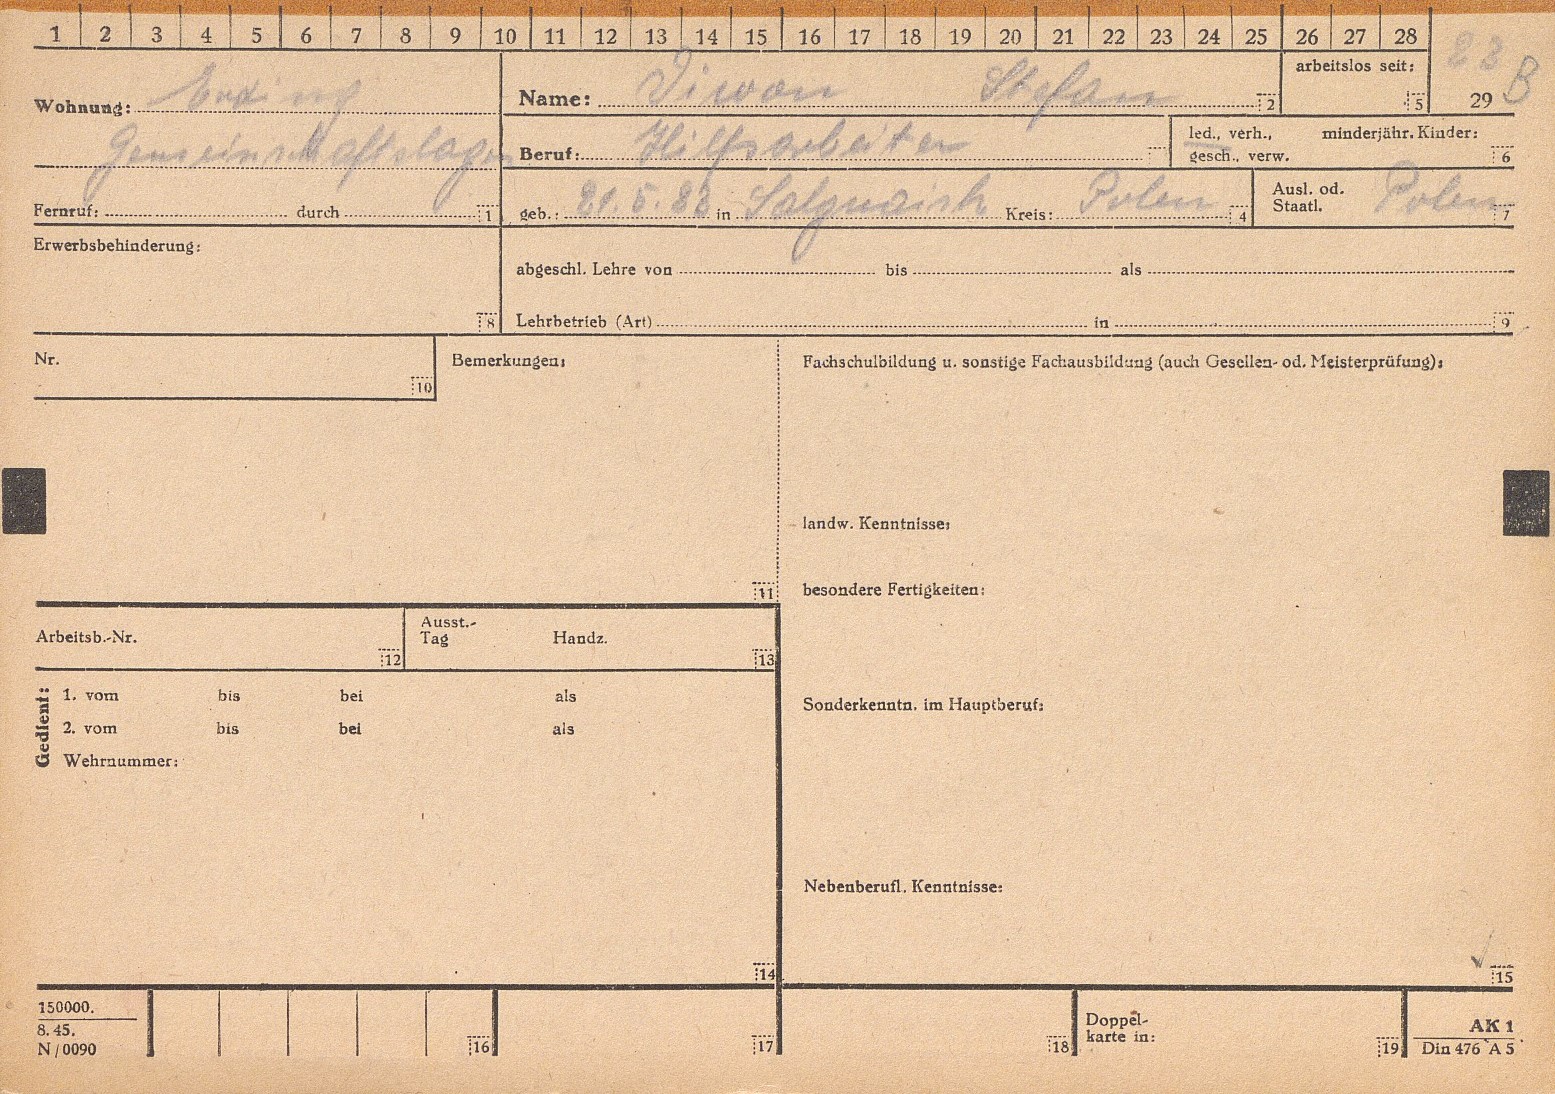 1 2 3 4 5 6 7 8 9 10 11 12 13 14 15 16 17 18 19 20 21 22 23 24 25 26 27 28
23 B
Wohnung: Erding
Name: Diwon Stefan 2
arbeitslos seit: 5
29
Gemeinschaftslager
Beruf: Hilfsarbeiter
led., verh., minderjähr. Kinder:
gesch., verw. 6
Fernruf: durch 1
geb.: 21.5.23 in Kreis: Polen 4
Ausl. od.
Staatl. Polen 7
Erwerbsbehinderung: 8
abgeschl. Lehre von bis als
Lehrbetrieb (Art) in 9
Nr. 10
Bemerkungen: 11
Fachschulbildung u. sonstige Fachausbildung (auch Gesellen- od. Meisterprüfung):
landw. Kenntnisse:
besondere Fertigkeiten:
Arbeitsb.-Nr. 12
Ausst.-
Tag Handz. 13
Gedient:
1. vom bis bei als
2. vom bis bei als
Wehrnummer:
14
Sonderkenntn. im Hauptberuf:
Nebenberufl. Kenntnisse:
15
150000.
8. 45.
N/0090
16 17 18
Doppel-
karte in: 19
AK 1
Din 476 A 5